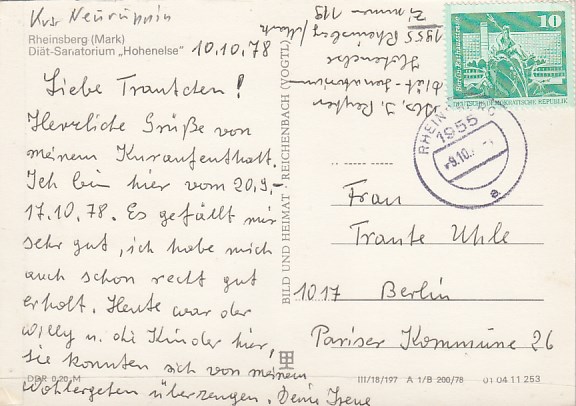 Krs Neuruppin
Rheinsberg (Mark)
Diät-Sanatorium „Hohenelse"
10.10.78
Liebe Trautchen!
Herzliche Grüße von
meinem Kuraufenthalt.
Ich bin hier vom 20.9.-
17.10.78. Es gefällt mir
sehr gut, ich habe mich
auch schon recht gut
erholt. Heute war der
Willy u. die Kinder hier,
sie konnten sich von meinem
Wohlergehen überzeugen. Deine Irene
DDR 0,20 M
Abs. I.
Diät-Sanatorium
Hohenelse
1955 Rheinsberg/Mark
Zimmer 119
BILD UND HEIMAT · REICHENBACH (VOGTL)
Berlin-Rathausstraße
10
DEUTSCHE DEMOKRATISCHE REPUBLIK
RHEINSBERG
1955
-9.10.
a
Frau
Traute Uhle
1017 Berlin
Pariser Kommune 26
III/18/197 A 1/B 200/78 01 04 11 253